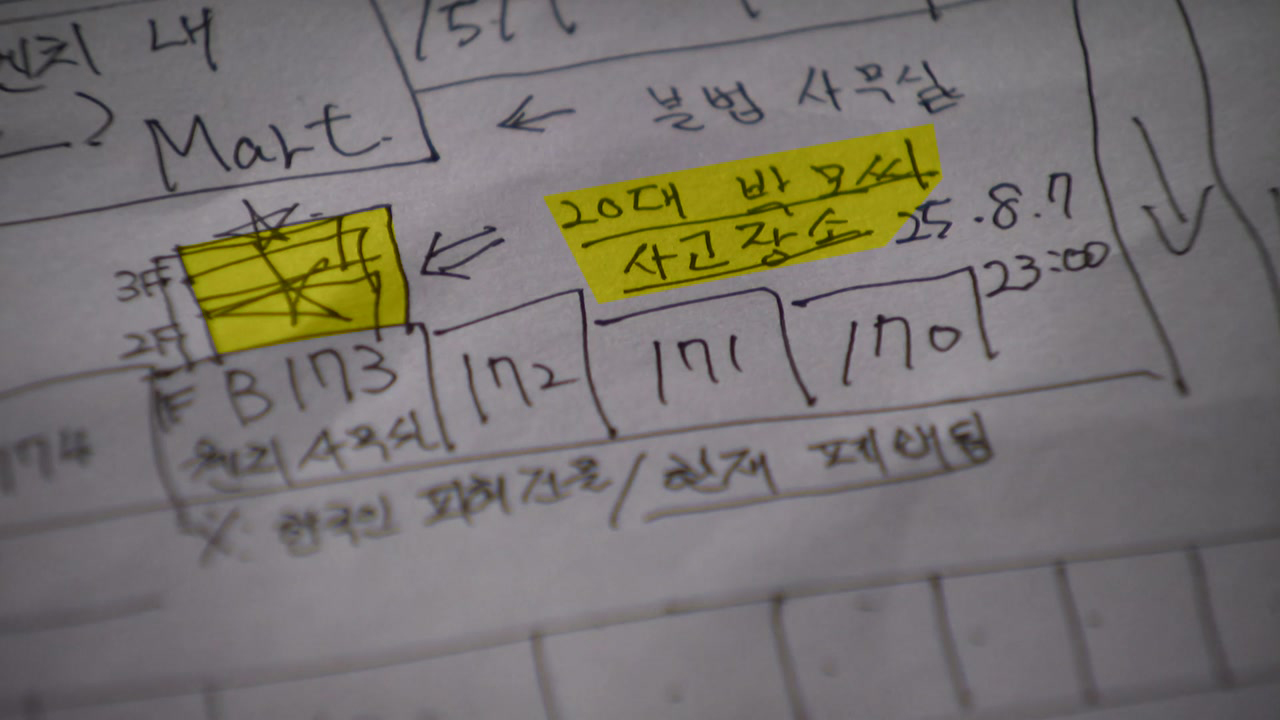 내
151
Mart.
← 불법 사무실
20대 박모씨
사고장소 25.8.7
23:00
3F
2F
1F B173 172 171 170
174
관리사무실
※ 한국인 피해건물 / 현재 페인팅